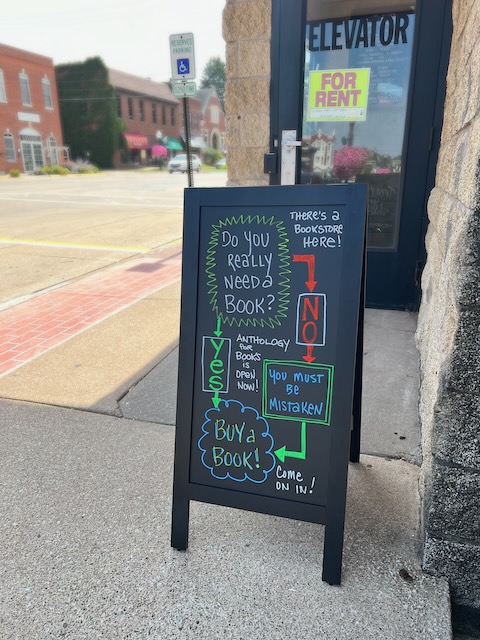 RESERVED
PARKING
ELEVATOR
FOR
RENT
THERE'S a
BOOKSTORE
HERE!
Do you
Really
Need a
Book?
NO
YES
ANTHOLOGY
FOR
BOOKS
IS
OPEN
NOW!
you must
Be
Mistaken
Buy a
Book!
Come
on in!